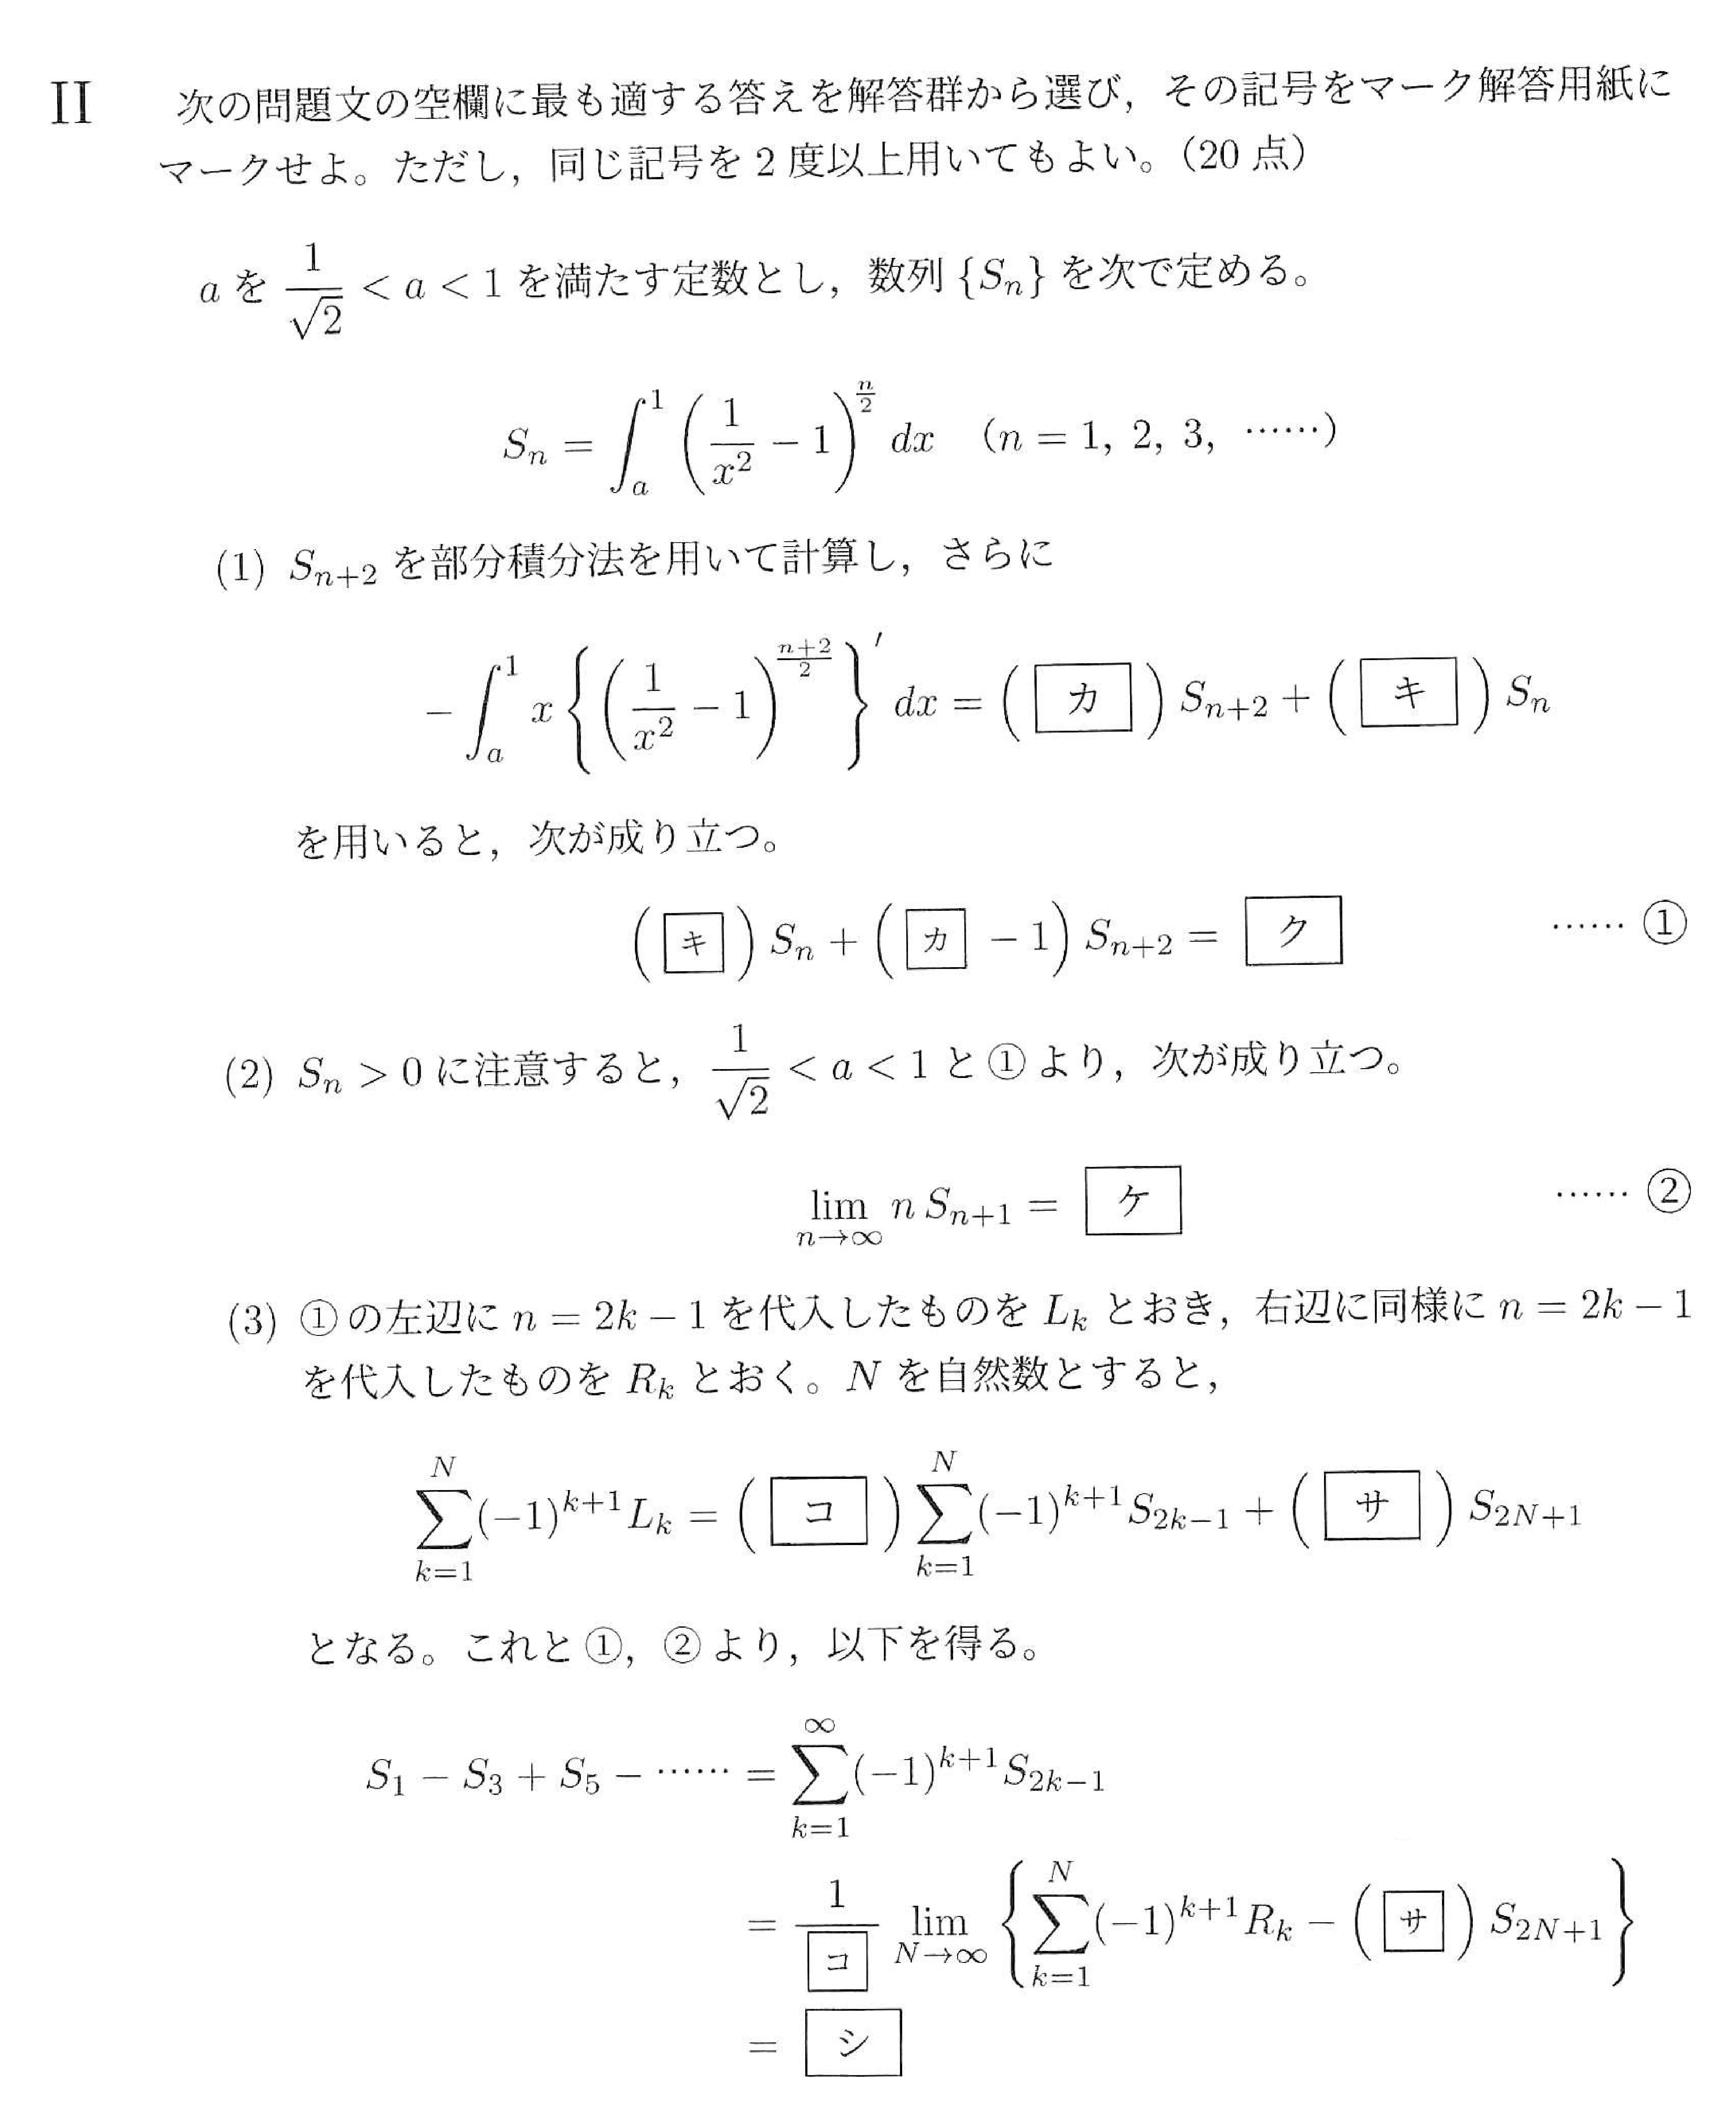 II 次の問題文の空欄に最も適する答えを解答群から選び，その記号をマーク解答用紙に
マークせよ。ただし，同じ記号を 2 度以上用いてもよい。（20 点）
a を \frac{1}{\sqrt{2}} < a < 1 を満たす定数とし，数列 {S_n} を次で定める。
S_n = \int_a^1 \left( \frac{1}{x^2} - 1 \right)^{\frac{n}{2}} dx （n = 1, 2, 3, ……）
(1) S_{n+2} を部分積分法を用いて計算し，さらに
- \int_a^1 x \left\{ \left( \frac{1}{x^2} - 1 \right)^{\frac{n+2}{2}} \right\}' dx = ( カ ) S_{n+2} + ( キ ) S_n
を用いると，次が成り立つ。
( キ ) S_n + ( カ - 1 ) S_{n+2} = ク …… ①
(2) S_n > 0 に注意すると， \frac{1}{\sqrt{2}} < a < 1 と ① より，次が成り立つ。
\lim_{n→∞} n S_{n+1} = ケ …… ②
(3) ① の左辺に n = 2k - 1 を代入したものを L_k とおき，右辺に同様に n = 2k - 1
を代入したものを R_k とおく。N を自然数とすると，
\sum_{k=1}^{N} (-1)^{k+1} L_k = ( コ ) \sum_{k=1}^{N} (-1)^{k+1} S_{2k-1} + ( サ ) S_{2N+1}
となる。これと ①，② より，以下を得る。
S_1 - S_3 + S_5 - …… = \sum_{k=1}^{∞} (-1)^{k+1} S_{2k-1}
= \frac{1}{コ} \lim_{N→∞} \left\{ \sum_{k=1}^{N} (-1)^{k+1} R_k - ( サ ) S_{2N+1} \right\}
= シ